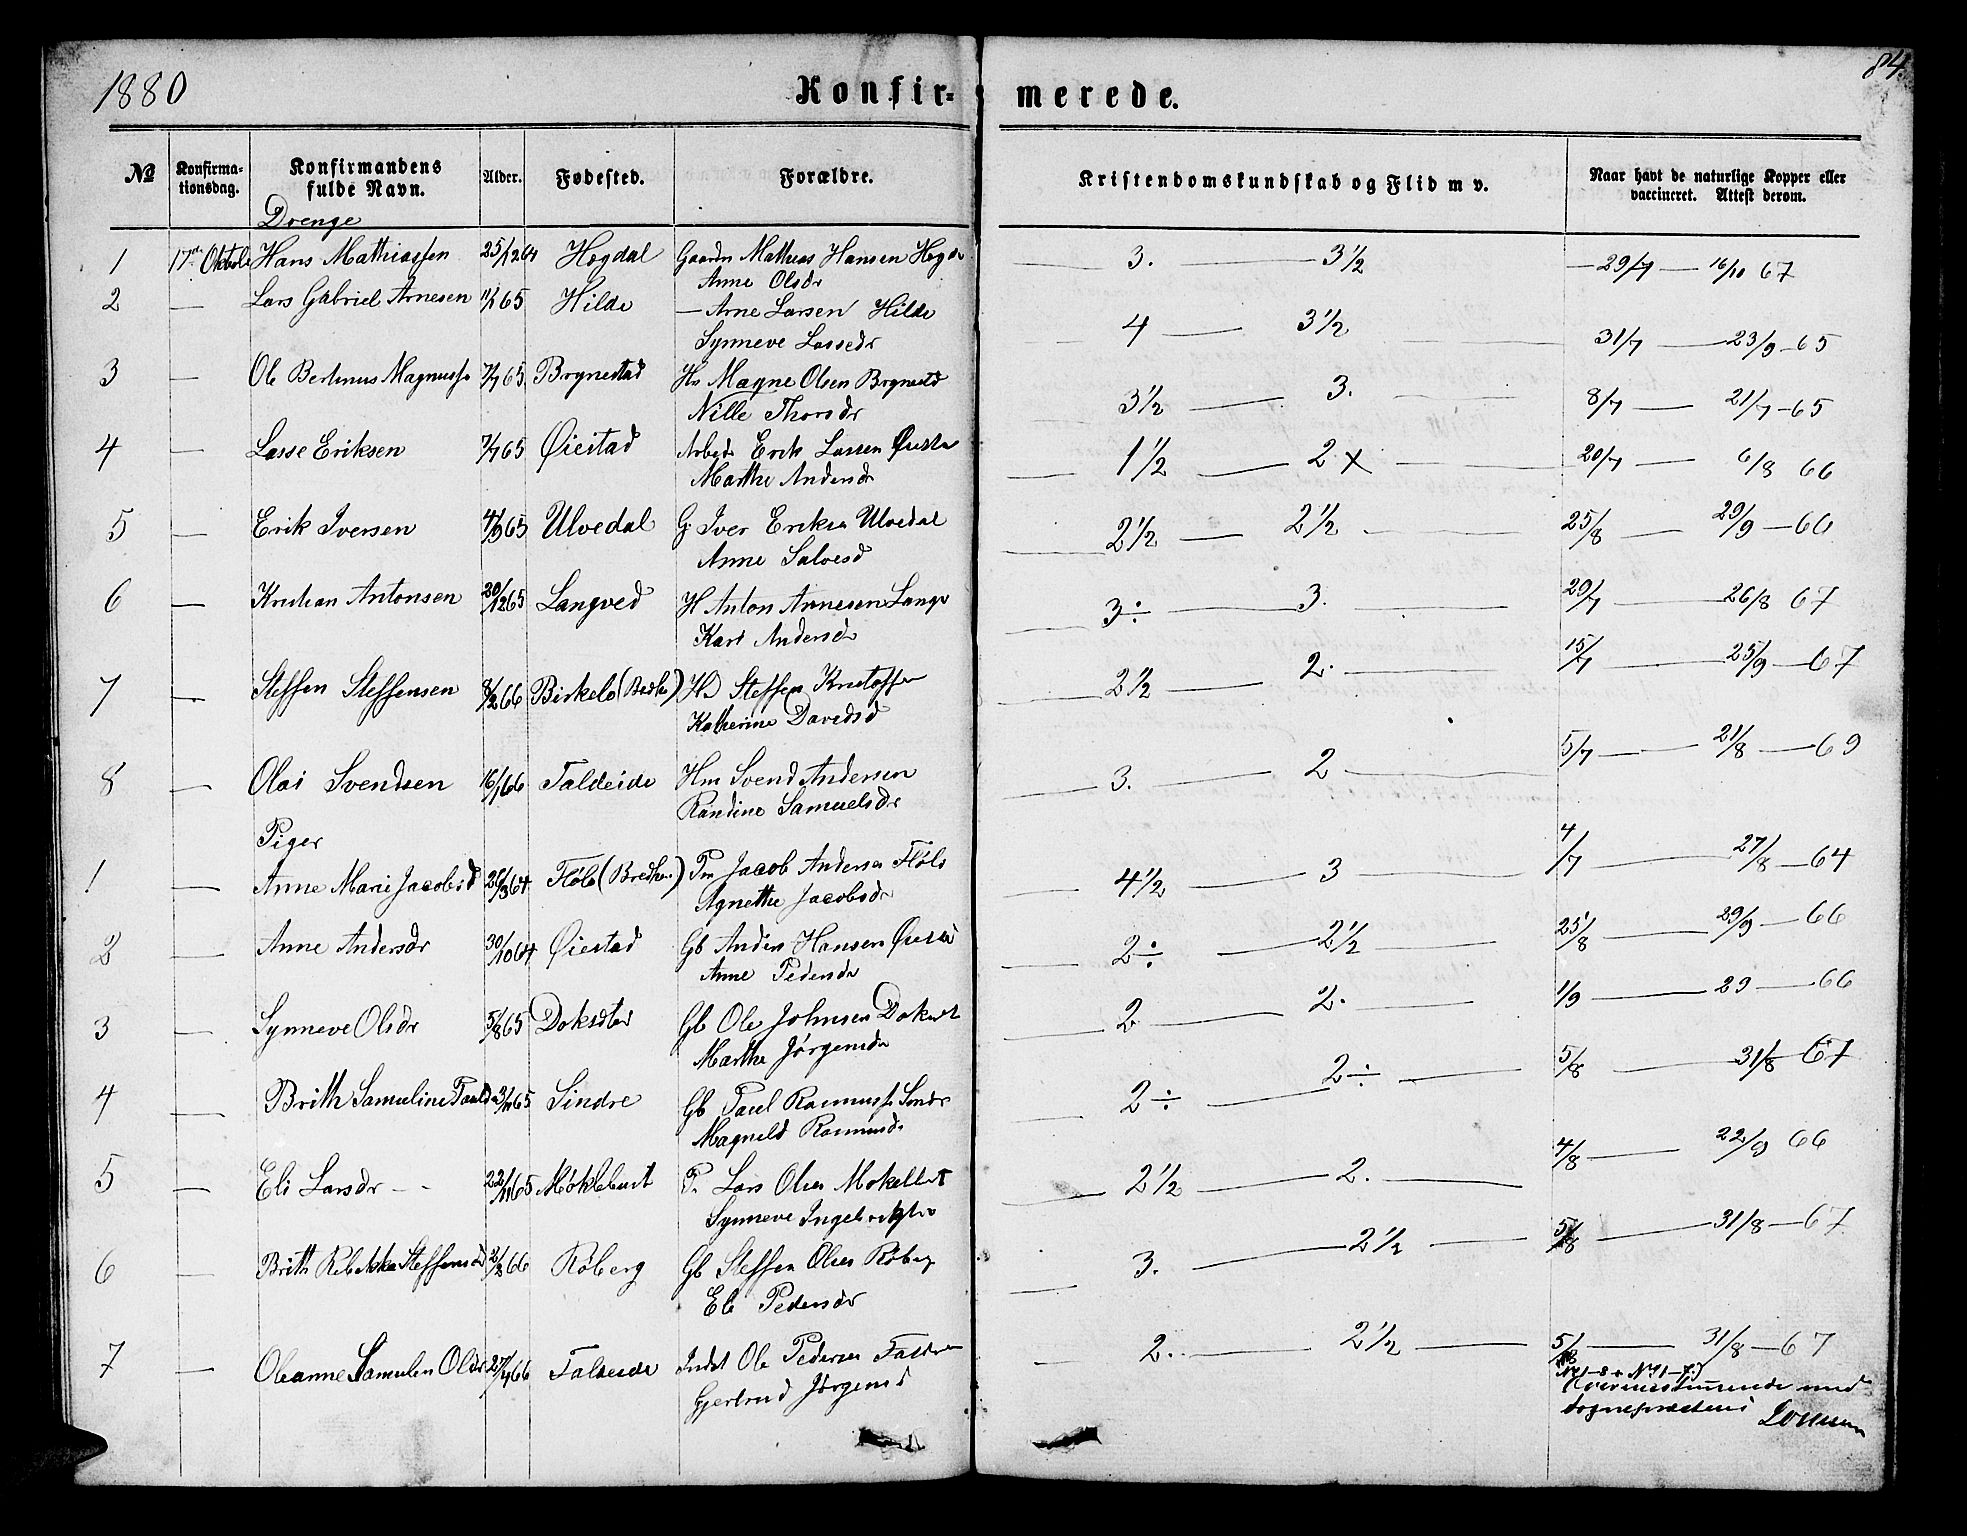 1880
Konfir-
merede.
84.
№ Konfirmationsdag. Konfirmandens fulde Navn. Alder. Fødested. Forældre. Kristendomskundskab og Flid m v. Naar havt de naturlige Kopper eller vaccineret. Attest derom.
Drenge
1 17de Hans Mathiassen 25/12 64 Hegdal Mathias Hansen 3. 3½ 29/7 — 16/10 67
Anne Olsdr
2 — Lars Gabriel Arnesen 11/1 65 Hilde — Arne Larsen Hilde 4 — 3½ 31/7 — 23/9 - 65
Synneve Lassedr
3 — Ole Bertinus 7/7 65 Brynestad Hs Magne Olsen 3½ — 3. 8/7 — 21/7 - 65
Nille Thorsdr
4 — Lasse Eriksen 7/7 65 Øiestad Erik Lassen 1½ — 2 x 20/7 — 6/8 66
Marthe Andersdr
5 — Erik Iversen 4/9 65 Ulvedal G. Iver Ulvedal 2½ — 2½ 25/8 — 29/9 — 66
Anne Salvesd
6 — Kristian Antonsen 20/12 65 Langved H Anton Arnesen 3÷ 3. 29/7 — 26/8 67
Kari Andersdr
7 — Steffen Steffensen 8/2 66 Birkelo Steffen 2½ — 2. 15/7 — 25/9 — 67
Katherine Davidsd
8 — Olai Svendsen 16/1 66 Taldeide Hm Svend Andersen 3. 2 5/7 — 21/8 — 69
Randine Samuelsdr
Piger
1 — Anne Marie Jacobsd 64 Fløle Jacob Andersen 4½ — 3 4/7 — 27/8 — 64
Agnethe Jacobsdr
2 — Anne Andersdr 30/10 64 Øiestad Gb Anders Hansen 2÷ — 2½ 25/8 — 29/9 — 66
Anne Pedersdr
3 — Synneve Olsdr 5/8 65 Gb Ole Johnsen 2 2. 1/9 — 29 — 66
Marthe Jørgensdr
4 — Brith Samuline 65 Sindre Gb Paul 2÷ 2÷ 5/8 — 31/8 — 67
Magnild
5 — Eli Larsdr 22/11 65 Møklebust Lars Olsen 2½ — 2. 4/8 — 22/9 66
Synneve
6 — Brith Rebekka Steffensd 66 Røberg Gb Steffen Olsen Røberg 3. 2½ 5/8 — 31/8 — 67
Eli Pedersdr
7 — Oleanne 66 Taldeide Ole Pedersen 2. — 2½ 5/8 — 31/8 — 67
Gjertrud
No 1-8 + No 1-7